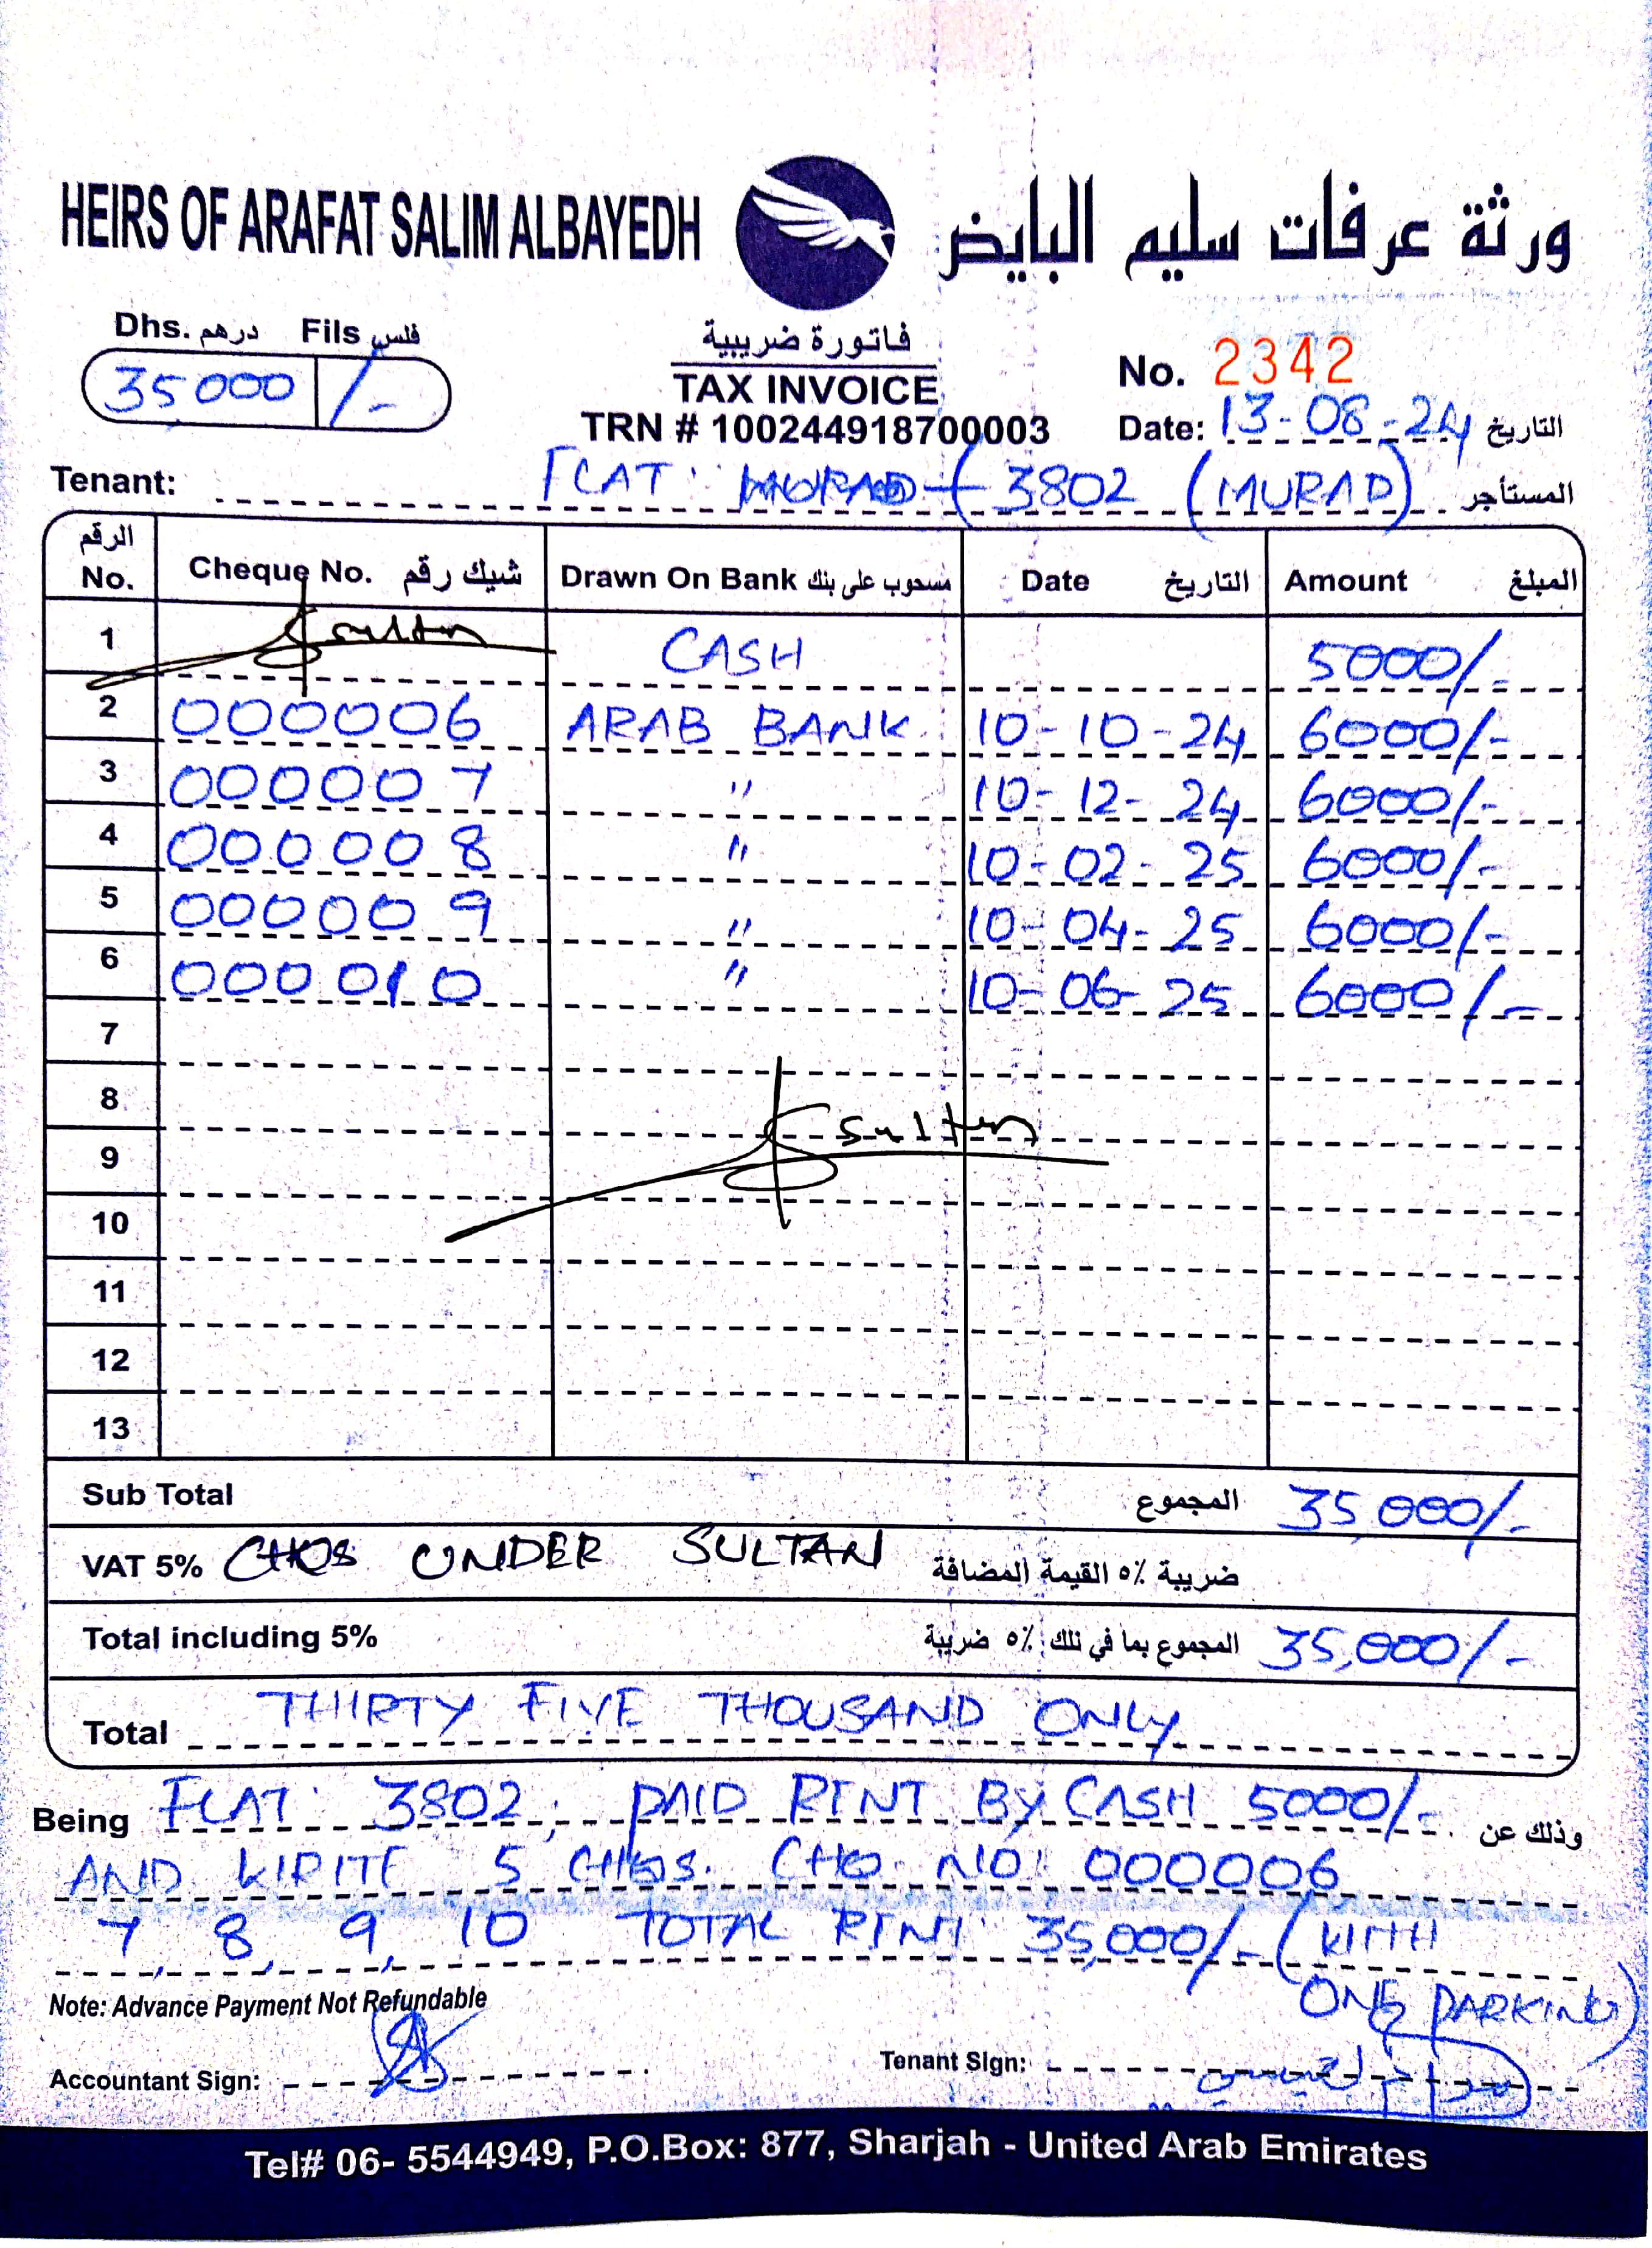 HEIRS OF ARAFAT SALIM ALBAYEDH ورثة عرفات سليم البايض
Dhs. درهم Fils فلس
35000 /-
فاتورة ضريبية
TAX INVOICE
TRN # 100244918700003
No. 2342
Date: 13-08-24 التاريخ
Tenant: FLAT: 3802 (MURAD) المستأجر
الرقم No. Cheque No. شيك رقم Drawn On Bank مسحوب على بنك Date التاريخ Amount المبلغ
1 Sultan CASH 5000/-
2 000006 ARAB BANK 10-10-24 6000/-
3 000007 " 10-12-24 6000/-
4 000008 " 10-02-25 6000/-
5 000009 " 10-04-25 6000/-
6 000010 " 10-06-25 6000/-
7
8
Sultan
9
10
11
12
13
Sub Total المجموع 35,000/-
VAT 5% CHQS UNDER SULTAN ضريبة ٥٪ القيمة المضافة
Total including 5% المجموع بما في ذلك ٥٪ ضريبة 35,000/-
Total THIRTY FIVE THOUSAND ONLY
Being FLAT: 3802, PAID RENT BY CASH 5000/- وذلك عن
AND 5 CHQS. CHQ NO: 000006
7, 8, 9, 10 TOTAL RENT: 35,000/- (WITH
ONE PARKING)
Note: Advance Payment Not Refundable
Accountant Sign: Tenant Sign:
Tel# 06- 5544949, P.O.Box: 877, Sharjah - United Arab Emirates